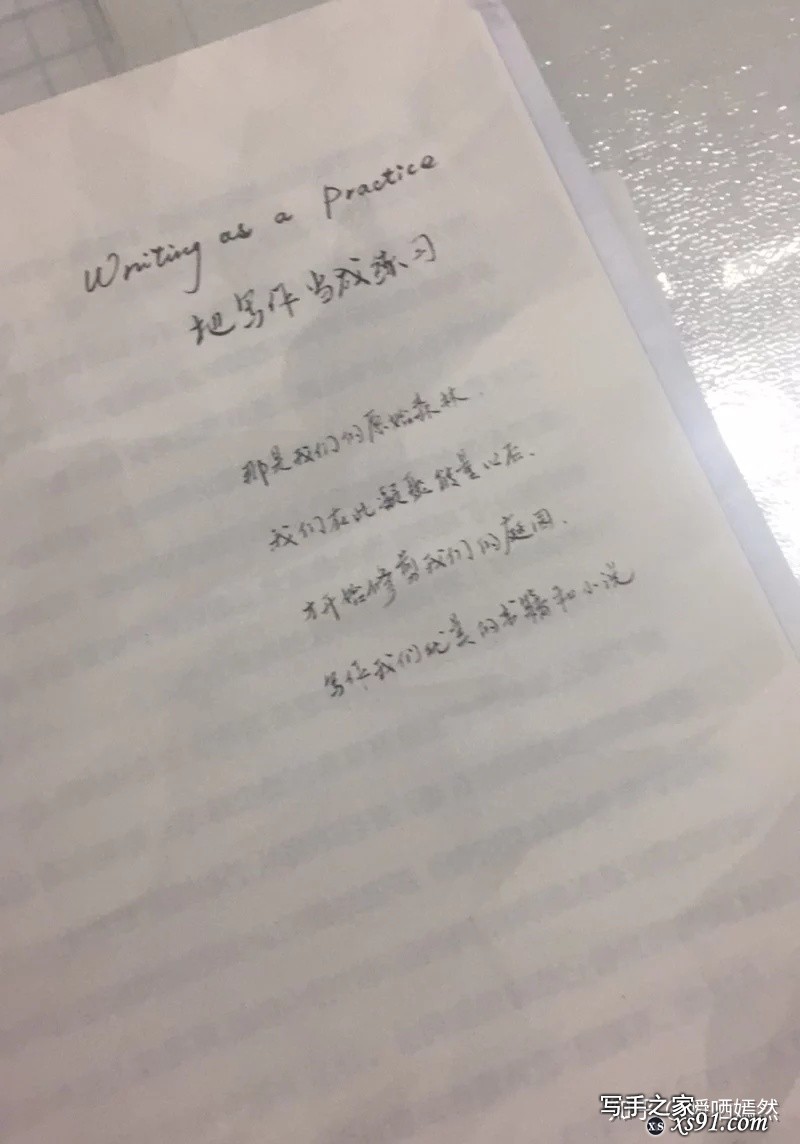 Writing as a Practice
把写作当成练习
那是我们的原始森林.
我们在此凝聚能量以后.
才开始修剪我们的庭园.
写作我们此类的书籍和小说
写手之家
嗳哂嫣然
xs xs91.com